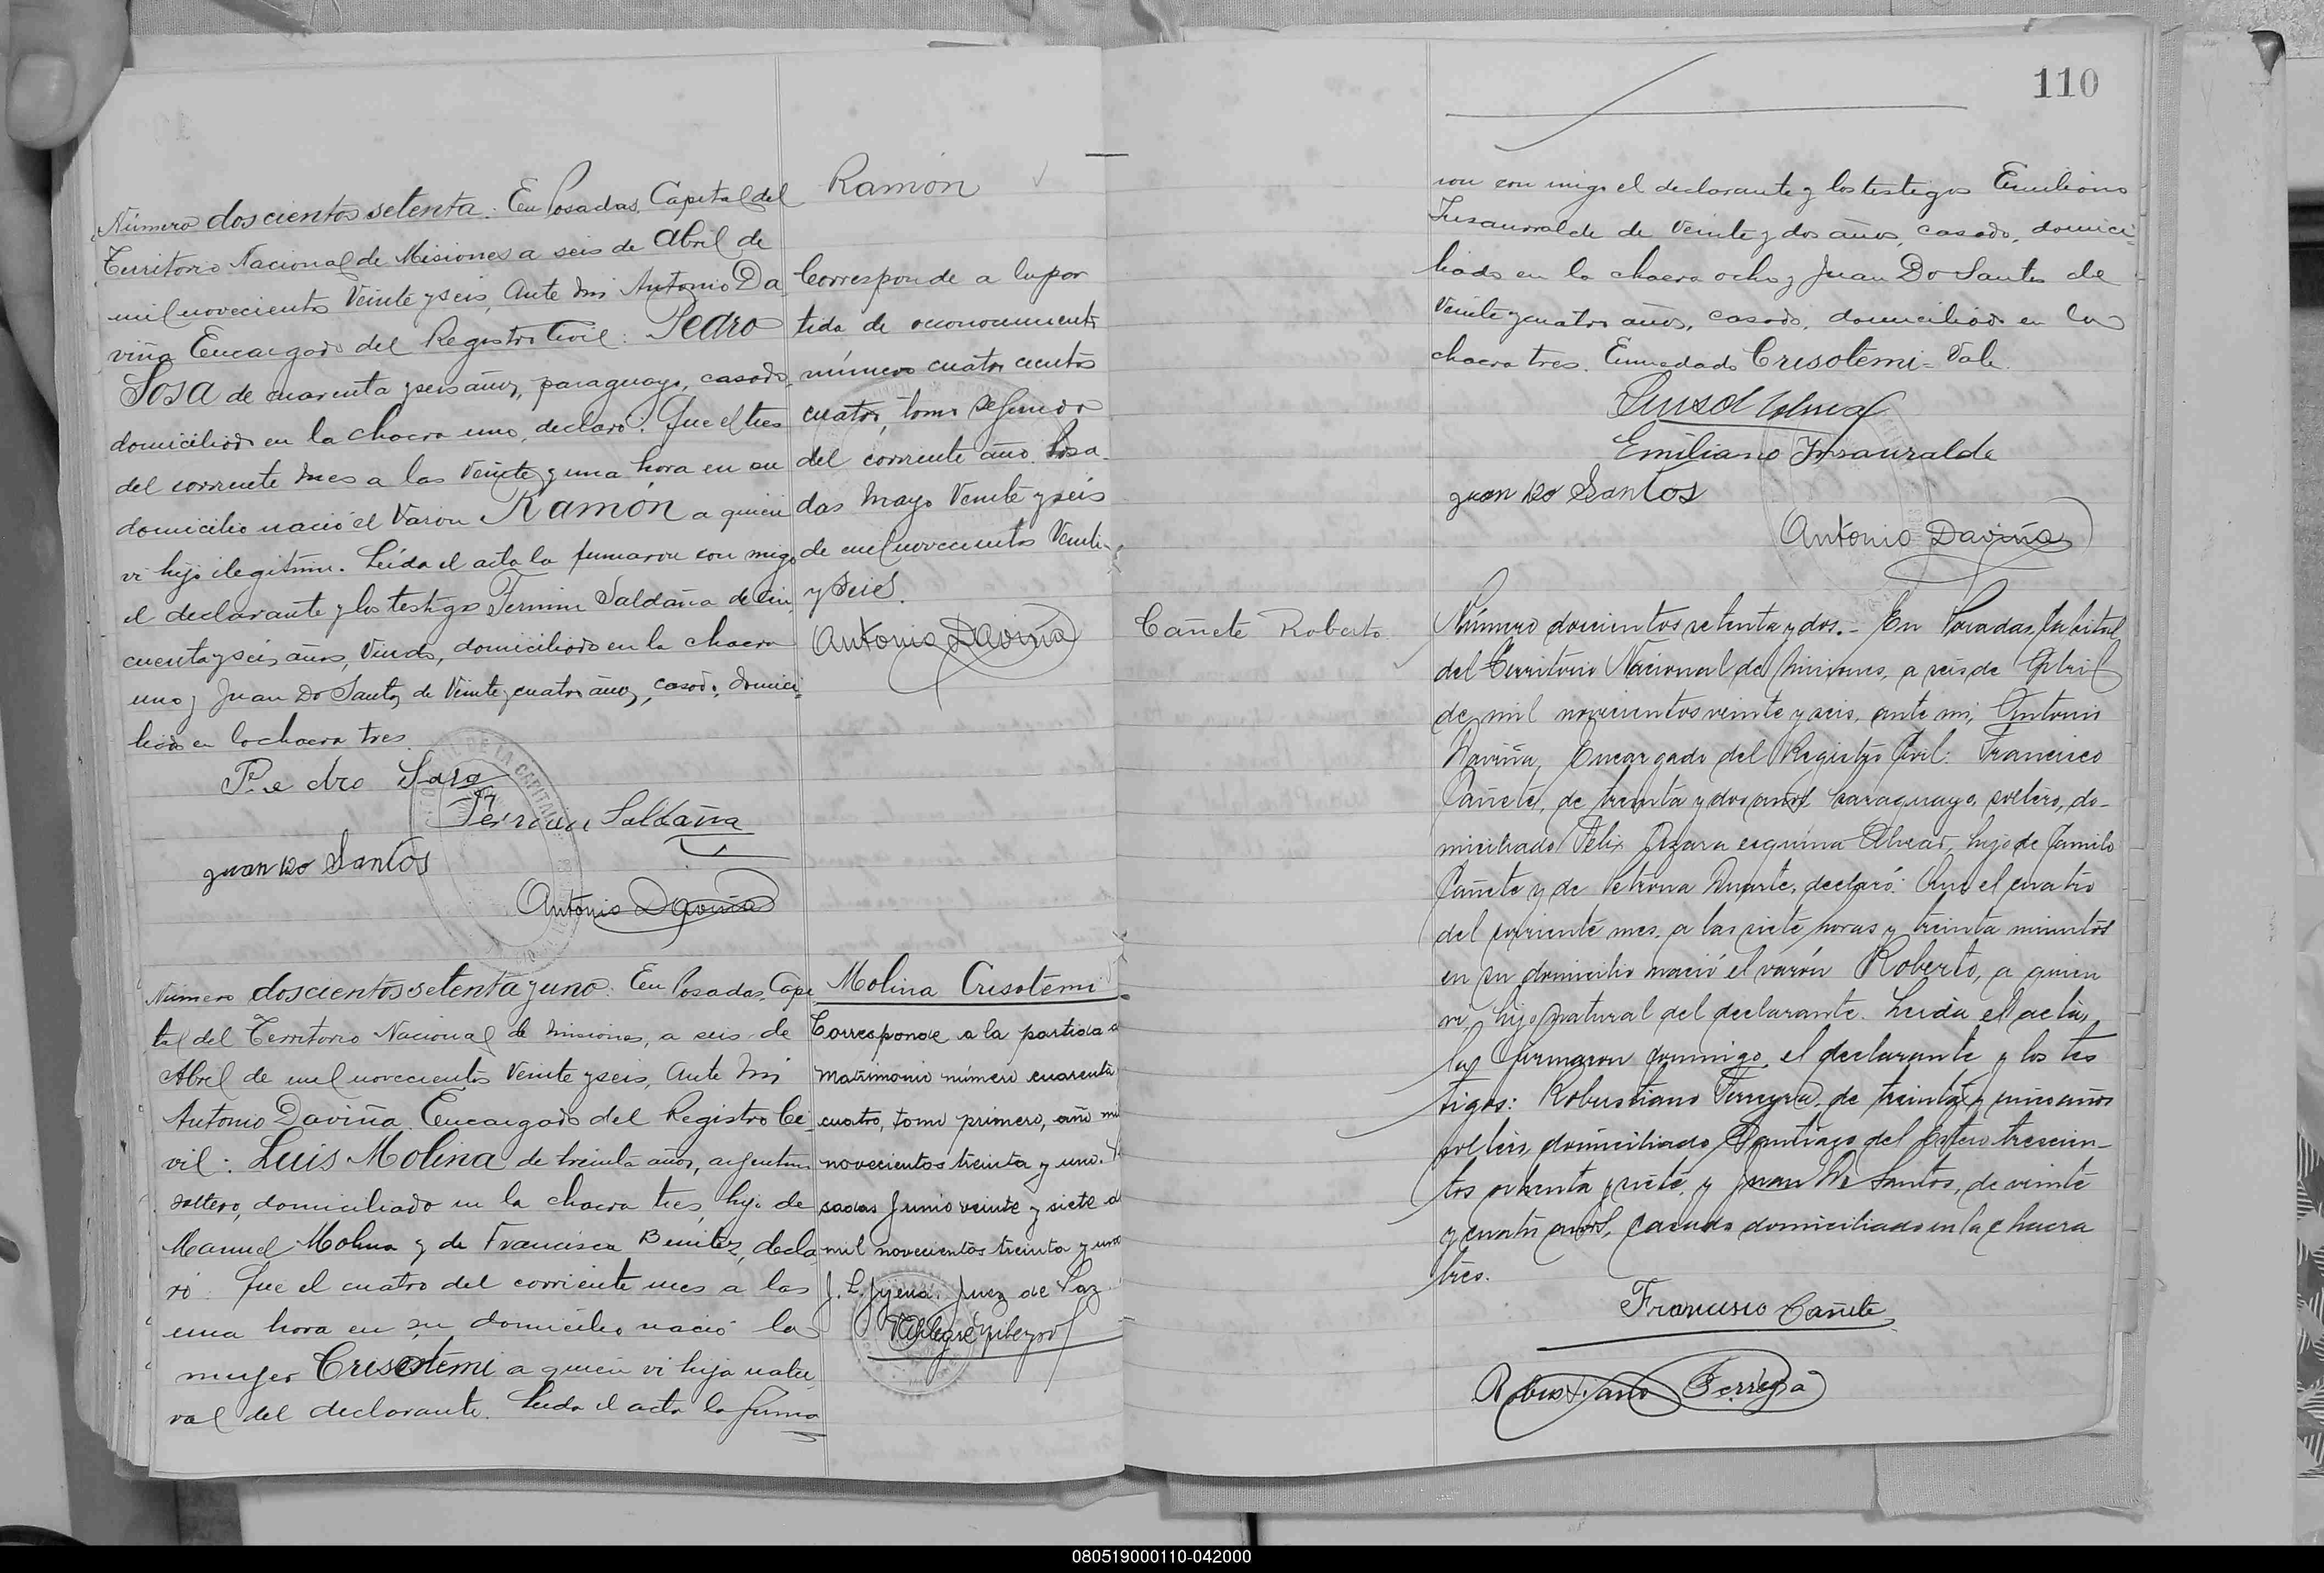 Número doscientos setenta: En Posadas, Capital del
Territorio Nacional de Misiones a seis de Abril de
mil novecientos veinte y seis, Ante mi Antonio Da
viña Encargado del Registro Civil: Pedro
Sosa de cuarenta y seis años, paraguayo, casado,
domiciliado en la chacra uno, declaró: Que el tres
del corriente mes a las veinte y una hora en su
domicilio nació el varon Ramón a quien
vi hijo ilegitimo. Leida el acta la firmaron con migo
el declarante y los testigos Fermin Saldaña de cin
cuenta y seis años, viudo, domiciliado en la chacra
uno y Juan Do Santos de veinte y cuatro años, casado, domici
liado en la chacra tres
Pedro Sosa
Fermin Saldaña
Juan Do Santos
Antonio Daviña
Ramón
Corresponde a la par
tida de reconocimiento
número cuatro cientos
cuatro, tomo segundo
del corriente año. Posa
das Mayo veinte y seis
de mil novecientos veinte
y seis.
Antonio Daviña
Número doscientos setenta y uno: En Posadas, Capi
tal del Territorio Nacional de Misiones, a seis de
Abril de mil novecientos veinte y seis, Ante mi
Antonio Daviña Encargado del Registro Ci
vil: Luis Molina de treinta años, argentino
soltero, domiciliado en la chacra tres, hijo de
Manuel Molina y de Francisca Benitez, decla
ró: Que el cuatro del corriente mes a las
una hora en su domicilio nació la
mujer Crisotemi a quien vi hija natu
ral del declarante. Leida el acta la firma
Molina Crisotemi
Corresponde a la partida d
matrimonio número cuarenta
cuatro, tomo primero, año mi
novecientos treinta y uno.
sadas Junio veinte y siete d
mil novecientos treinta y uno
Juez de Paz
110
ron con migo el declarante y los testigos Emiliano
Insaurralde de veinte y dos años, casado, domici
liado en la chacra ocho y Juan Do Santos de
veinte y cuatro años, casado, domiciliado en la
chacra tres. Enmedado Crisotemi = Vale.
Emiliano Insauralde
Juan Do Santos
Antonio Daviña
Cañete Roberto
Número doscientos setenta y dos.- En Posadas, Capital
del Territorio Nacional de Misiones, a seis de Abril
de mil novecientos veinte y seis, ante mi, Antonio
Daviña, Encargado del Registro Civil: Francisco
Cañete, de treinta y dos años paraguayo, soltero, do-
miciliado Félix Azara esquina Alvear, hijo de Camilo
Cañete y de Petrona Duarte, declaró: Que el cuatro
del corriente mes, a las siete horas y treinta minutos
en su domicilio nació el varón Roberto, a quien
vi, hijo natural del declarante. Leida el acta,
la firmaron conmigo el declarante y los tes
tigos: Robustiano Ferreyra, de treinta y cinco años
soltero, domiciliado Santiago del Estero trescien-
tos ochenta y siete, y Juan Do Santos, de veinte
y cuatro años, casado domiciliado en la chacra
tres.
Francisco Cañete
Robustiano Ferreyra
080519000110-042000